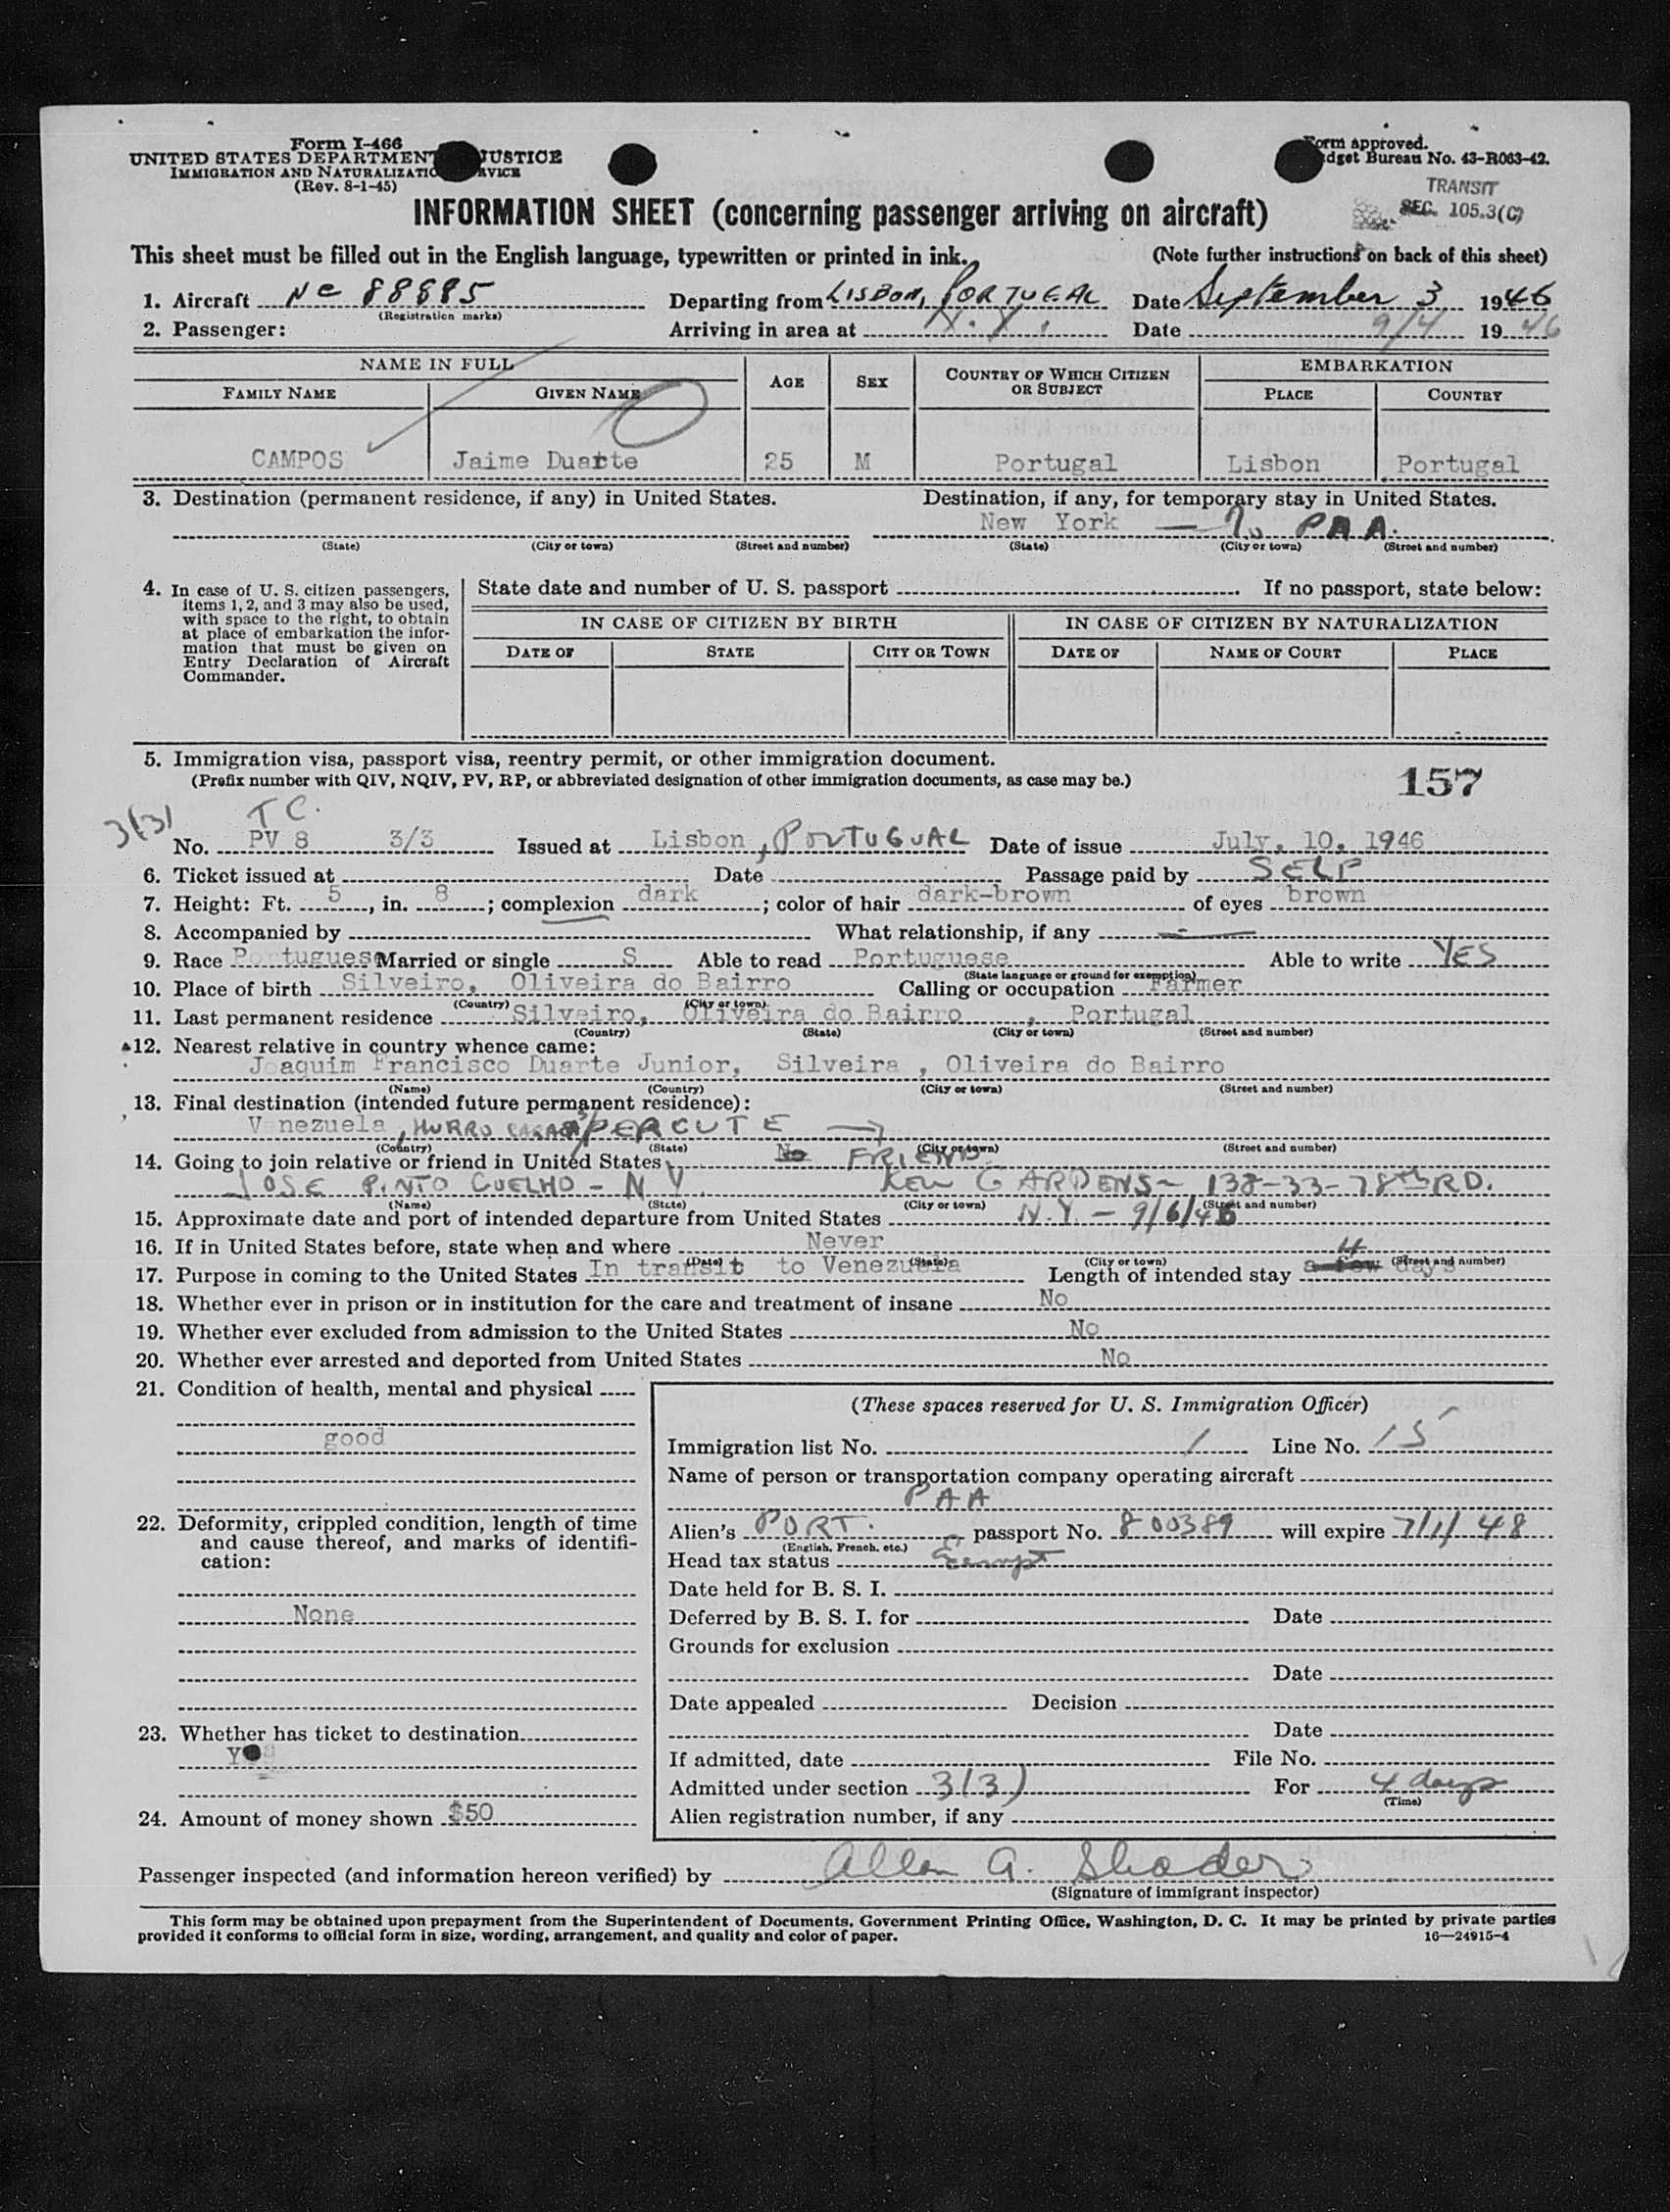 Form I-466
UNITED STATES DEPARTMENT JUSTICE
IMMIGRATION AND NATURALIZATIO RVICE
(Rev. 8-1-45)
Form approved.
dget Bureau No. 43-R063-42.
TRANSIT
SEC. 105.3(C)
INFORMATION SHEET (concerning passenger arriving on aircraft)
This sheet must be filled out in the English language, typewritten or printed in ink. (Note further instructions on back of this sheet)
1. Aircraft Nc 88885 Departing from LISBON, PORTUGAL Date September 3 1946
(Registration marks)
2. Passenger: Arriving in area at N.Y. Date 9/4 1946
NAME IN FULL AGE SEX COUNTRY OF WHICH CITIZEN OR SUBJECT EMBARKATION
FAMILY NAME GIVEN NAME PLACE COUNTRY
CAMPOS Jaime Duarte 25 M Portugal Lisbon Portugal
3. Destination (permanent residence, if any) in United States. Destination, if any, for temporary stay in United States.
New York — % PAA.
(State) (City or town) (Street and number) (State) (City or town) (Street and number)
4. In case of U. S. citizen passengers, items 1, 2, and 3 may also be used, with space to the right, to obtain at place of embarkation the information that must be given on Entry Declaration of Aircraft Commander.
State date and number of U. S. passport If no passport, state below:
IN CASE OF CITIZEN BY BIRTH IN CASE OF CITIZEN BY NATURALIZATION
DATE OF STATE CITY OR TOWN DATE OF NAME OF COURT PLACE
5. Immigration visa, passport visa, reentry permit, or other immigration document.
(Prefix number with QIV, NQIV, PV, RP, or abbreviated designation of other immigration documents, as case may be.)
157
3(3) TC.
No. PV 8 3/3 Issued at Lisbon, PORTUGUAL Date of issue July, 10, 1946
6. Ticket issued at Date Passage paid by SELF
7. Height: Ft. 5, in. 8; complexion dark; color of hair dark-brown of eyes brown
8. Accompanied by What relationship, if any —
9. Race Portuguese Married or single S Able to read Portuguese Able to write YES
(State language or ground for exemption)
10. Place of birth Silveiro, Oliveira do Bairro Calling or occupation Farmer
(Country) (City or town)
11. Last permanent residence Silveiro, Oliveira do Bairro, Portugal
(Country) (State) (City or town) (Street and number)
12. Nearest relative in country whence came:
Joaquim Francisco Duarte Junior, Silveira , Oliveira do Bairro
(Name) (Country) (City or town) (Street and number)
13. Final destination (intended future permanent residence):
Venezuela,
(Country) (State) (City or town) (Street and number)
14. Going to join relative or friend in United States No FRIEND
JOSE PINTO CUELHO - N.Y. KEW GARDENS - 138-33-78th RD.
(Name) (State) (City or town) (Street and number)
15. Approximate date and port of intended departure from United States N.Y. - 9/6/46
16. If in United States before, state when and where Never
(Date) (State) (City or town) (Street and number)
17. Purpose in coming to the United States In transit to Venezuela Length of intended stay a few 4 days
18. Whether ever in prison or in institution for the care and treatment of insane No
19. Whether ever excluded from admission to the United States No
20. Whether ever arrested and deported from United States No
21. Condition of health, mental and physical
good
22. Deformity, crippled condition, length of time and cause thereof, and marks of identification:
None
23. Whether has ticket to destination
Y
24. Amount of money shown $50
(These spaces reserved for U. S. Immigration Officer)
Immigration list No. 1 Line No. 15
Name of person or transportation company operating aircraft
PAA
Alien's PORT. passport No. 800389 will expire 7/1/48
(English, French, etc.)
Head tax status Exempt
Date held for B. S. I.
Deferred by B. S. I. for Date
Grounds for exclusion
Date
Date appealed Decision
Date
If admitted, date File No.
Admitted under section 3(3) For 4 days
(Time)
Alien registration number, if any
Passenger inspected (and information hereon verified) by Allen A. Shader
(Signature of immigrant inspector)
This form may be obtained upon prepayment from the Superintendent of Documents, Government Printing Office, Washington, D. C. It may be printed by private parties
provided it conforms to official form in size, wording, arrangement, and quality and color of paper. 16—24915-4